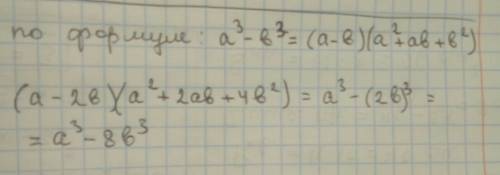 по формуле: a³-b³=(a-b)(a²+ab+b²)
(a-2b)(a²+2ab+4b²)=a³-(2b)³=
=a³-8b³